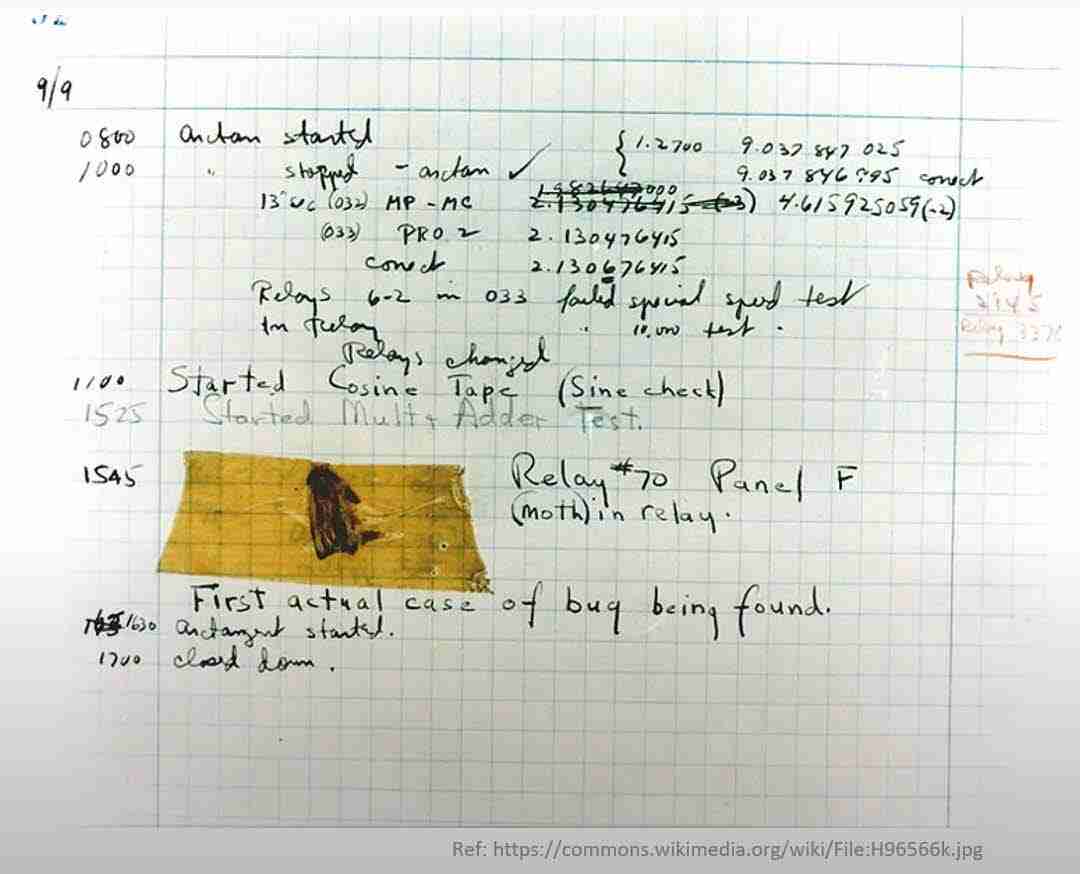 9/9
0800 arctan started { 1.2700 9.037 847 025
1000 " stopped - arctan ✓ 9.037 846 995 correct
13"uc (032) MP - MC 1.982647000
2.130476415 (-3) 4.615925059(-2)
(033) PRO 2 2.130476415
correct 2.130676415
Relays 6-2 in 033 failed special speed test
In Relay " 10,000 test .
Relay
2145
Relay 3370
Relays changed
1100 Started Cosine Tape (Sine check)
1525 Started Mult + Adder Test.
1545 Relay #70 Panel F
(moth) in relay.
First actual case of bug being found.
1630 arctangent started.
1700 closed down .
Ref: https://commons.wikimedia.org/wiki/File:H96566k.jpg